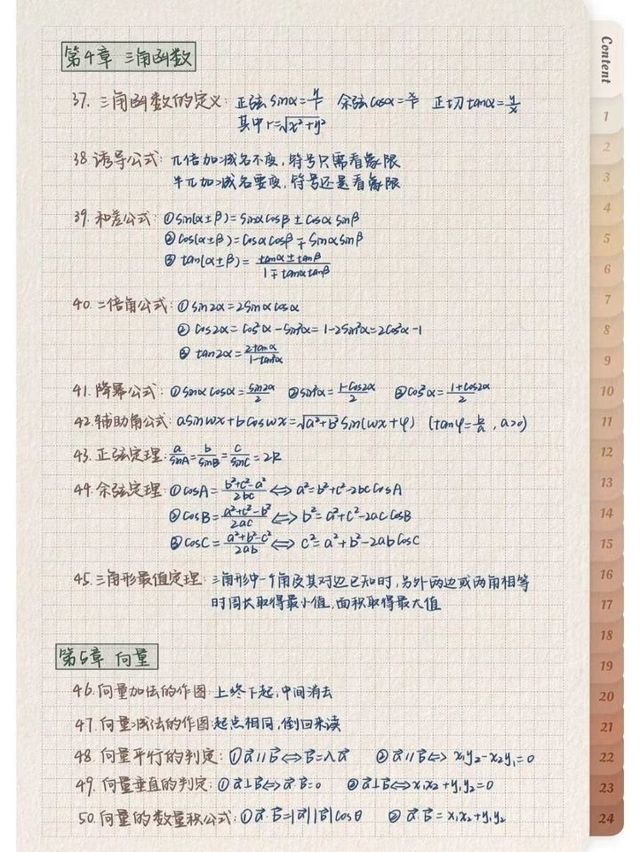 第4章 三角函数
37. 三角函数的定义: 正弦 sinα=y/r 余弦 cosα=x/r 正切 tanα=y/x
其中 r=√(x²+y²)
38 诱导公式: π倍加减名不变, 符号只需看象限
半π加减名要变, 符号还是看象限
39. 和差公式: ①sin(α±β)=sinαcosβ±cosαsinβ
②cos(α±β)=cosαcosβ∓sinαsinβ
③tan(α±β)=(tanα±tanβ)/(1∓tanαtanβ)
40. 二倍角公式: ①sin2α=2sinαcosα
②cos2α=cos²α-sin²α=1-2sin²α=2cos²α-1
③tan2α=2tanα/(1-tan²α)
41. 降幂公式: ①sinαcosα=sin2α/2 ②sin²α=(1-cos2α)/2 ③cos²α=(1+cos2α)/2
42. 辅助角公式: asinwx+bcoswx=√(a²+b²)sin(wx+φ) (tanφ=b/a, a>0)
43. 正弦定理: a/sinA=b/sinB=c/sinC=2R
44. 余弦定理: ①cosA=(b²+c²-a²)/2bc⇔a²=b²+c²-2bccosA
②cosB=(a²+c²-b²)/2ac⇔b²=a²+c²-2accosB
③cosC=(a²+b²-c²)/2ab⇔c²=a²+b²-2abcosC
45. 三角形最值定理: 三角形中一个角及其对边已知时, 另外两边或两角相等
时周长取得最小值, 面积取得最大值
第5章 向量
46. 向量加法的作图: 上终下起, 中间消去
47. 向量减法的作图: 起点相同, 倒回来读
48. 向量平行的判定: ①a⃗∥b⃗⇔b⃗=λa⃗ ②a⃗∥b⃗⇔x₁y₂-x₂y₁=0
49. 向量垂直的判定: ①a⃗⊥b⃗⇔a⃗·b⃗=0 ②a⃗⊥b⃗⇔x₁x₂+y₁y₂=0
50. 向量的数量积公式: ①a⃗·b⃗=|a⃗||b⃗|cosθ ②a⃗·b⃗=x₁x₂+y₁y₂
Content
1
2
3
4
5
6
7
8
9
10
11
12
13
14
15
16
17
18
19
20
21
22
23
24